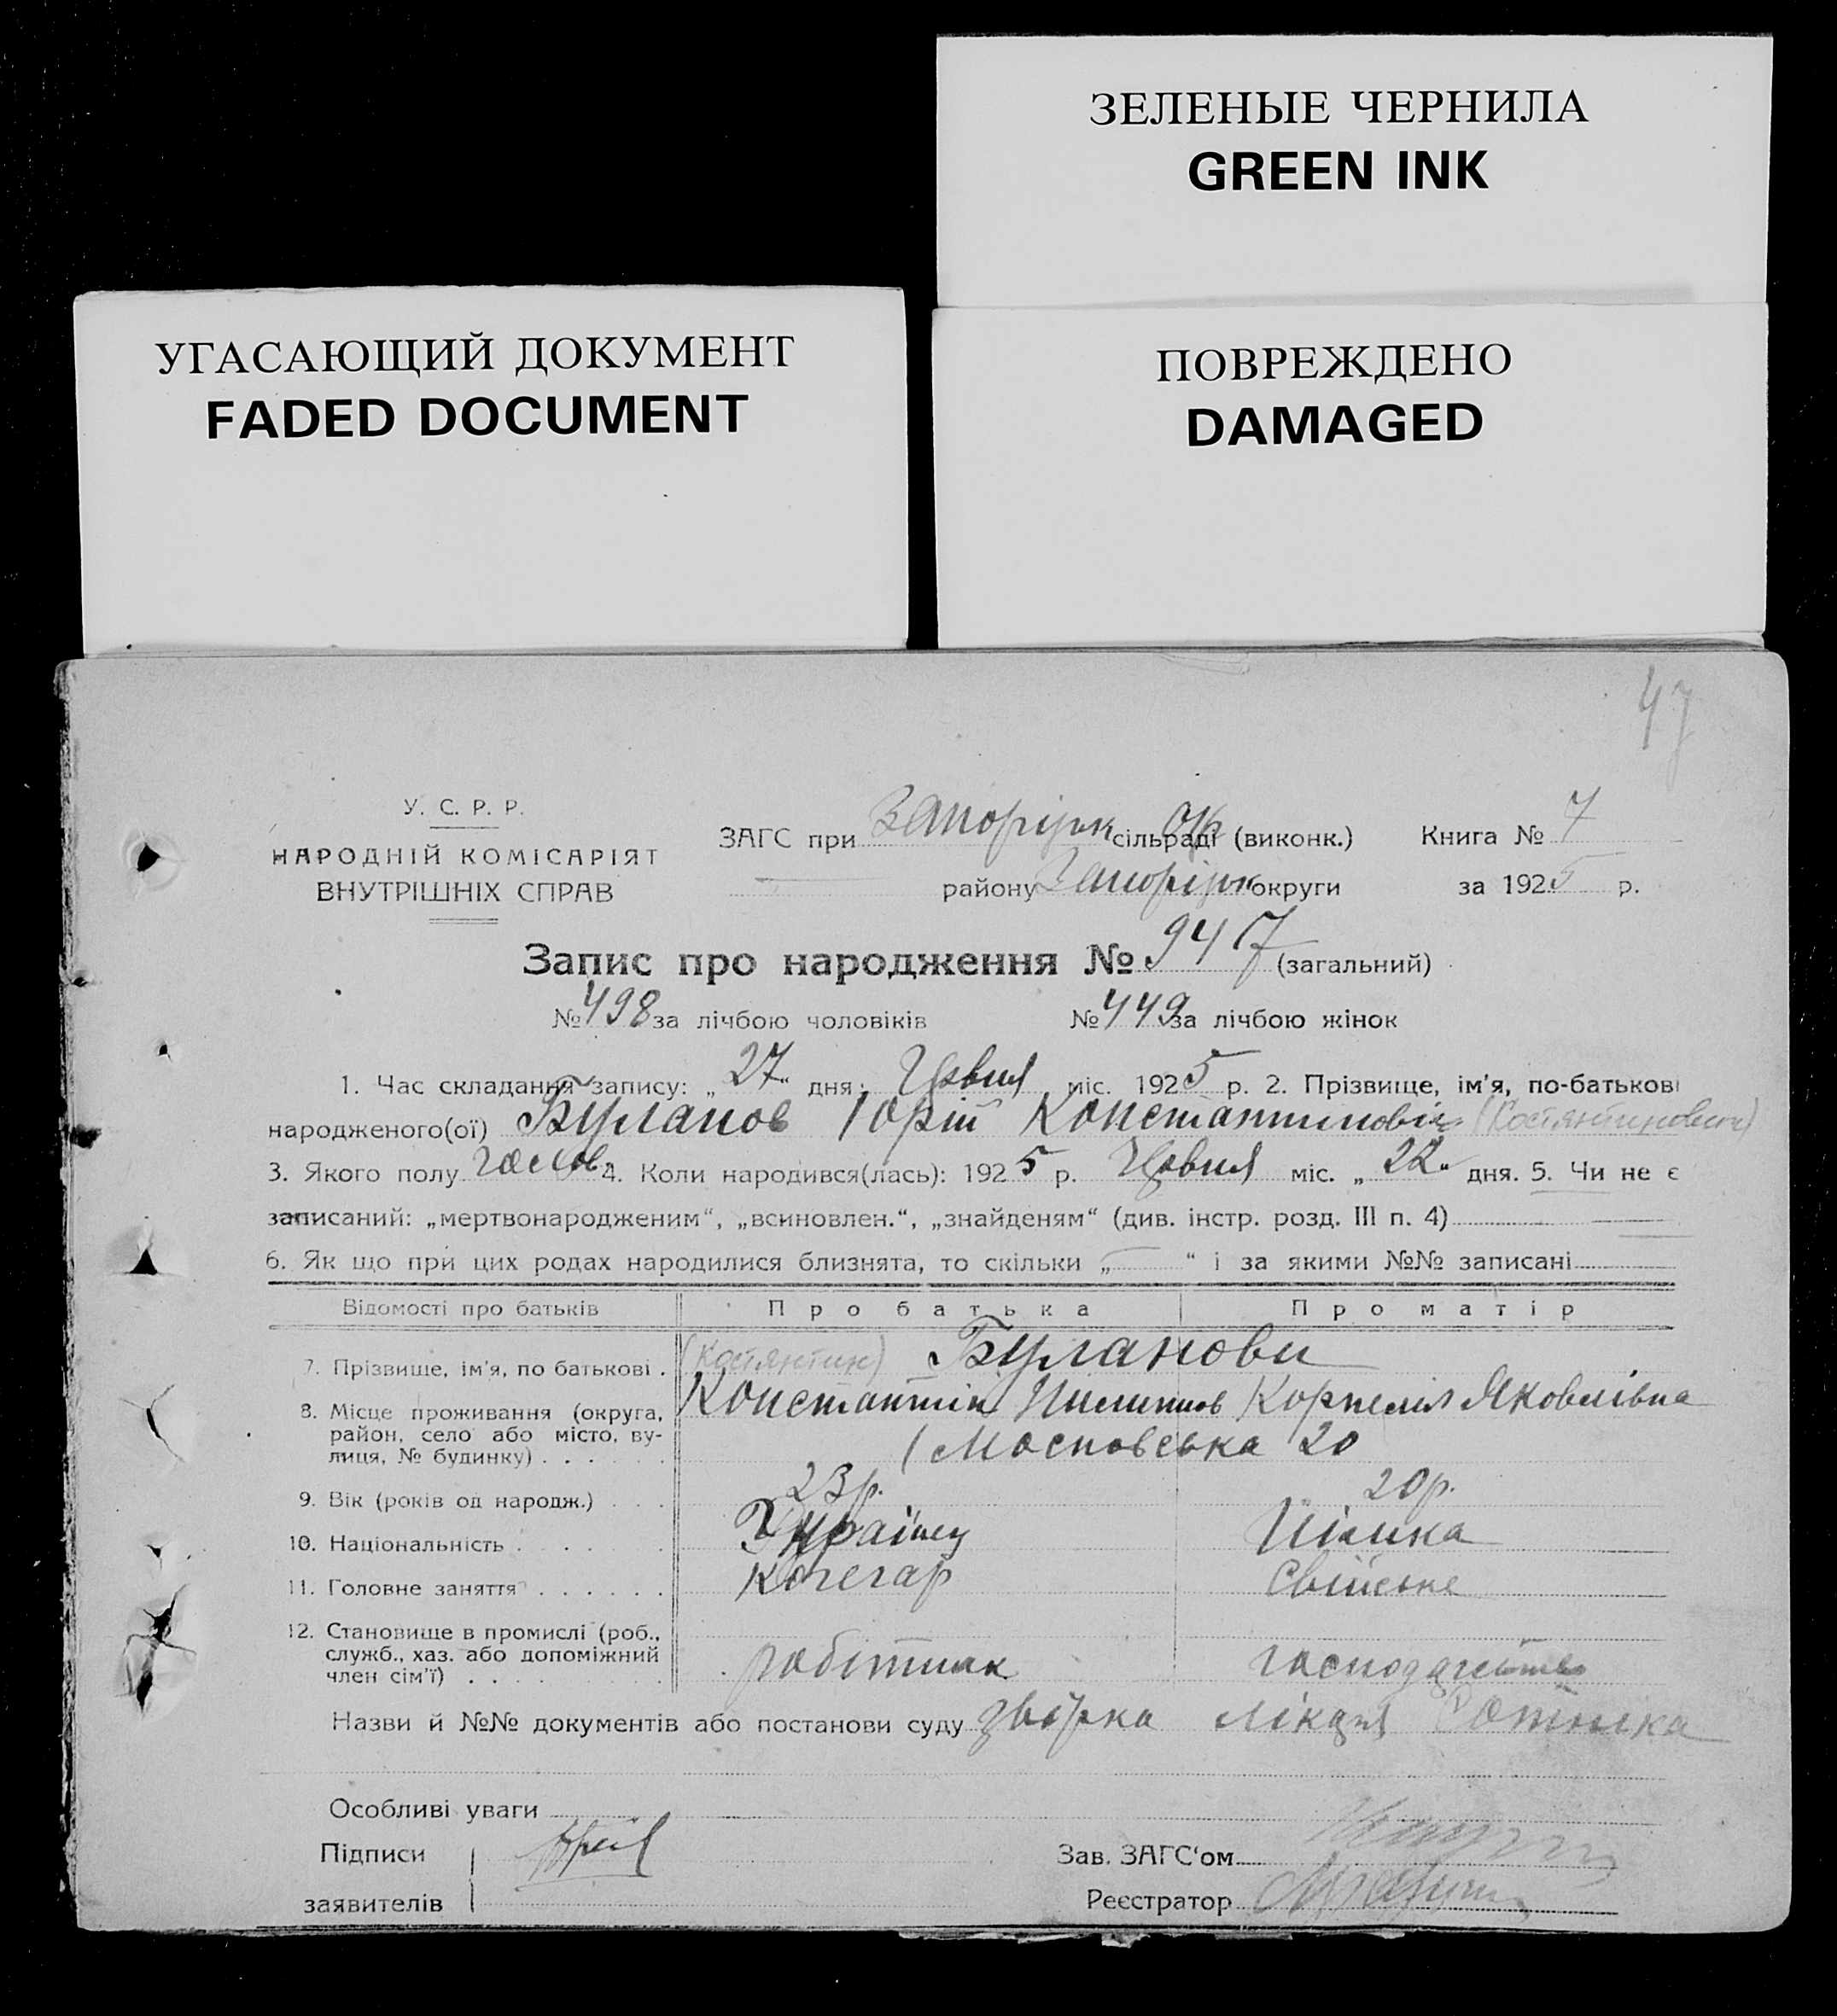 ЗЕЛЕНЫЕ ЧЕРНИЛА
GREEN INK
УГАСАЮЩИЙ ДОКУМЕНТ
FADED DOCUMENT
ПОВРЕЖДЕНО
DAMAGED
47
У. С. Р. Р.
НАРОДНІЙ КОМІСАРІЯТ
ВНУТРІШНІХ СПРАВ
ЗАГС при Запоріжк сільраді Окр (виконк.) Книга № 7
району Запоріжк округи за 1925 р.
Запис про народження № 947 (загальний)
№ 498 за лічбою чоловіків № 449 за лічбою жінок
1. Час складання запису: „27“ дня: Червня міс. 1925 р. 2. Прізвище, ім'я, по-батькові
народженого(ої) Буланов Юрій Константинович (Костянтинович)
3. Якого полу чолов. 4. Коли народився(лась): 1925 р. Червня міс. „22“ дня. 5. Чи не є
записаний: „мертвонародженим“, „всиновлен.“, „знайденям“ (див. інстр. розд. III п. 4)
6. Як що при цих родах народилися близнята, то скільки „ “ і за якими №№ записані
Відомості про батьків Про батька Про матір
7. Прізвище, ім'я, по батькові . (Костянтин) Буланови
Константін Корнелія Яковлівна
8. Місце проживання (округа, район, село або місто, вулиця, № будинку) . . . . . . Московська 20
9. Вік (років од народж.) . . . 23р. 20р.
10. Національність . . . . . . Українец Німка
11. Головне заняття . . . . . . Кочегар Свійське
12. Становище в промислі (роб., служб., хаз. або допоміжний член сім'ї) . . . . . . . . . робітник господарство
Назви й №№ документів або постанови суду
Особливі уваги
Підписи
заявителів
Зав. ЗАГС'ом
Реєстратор